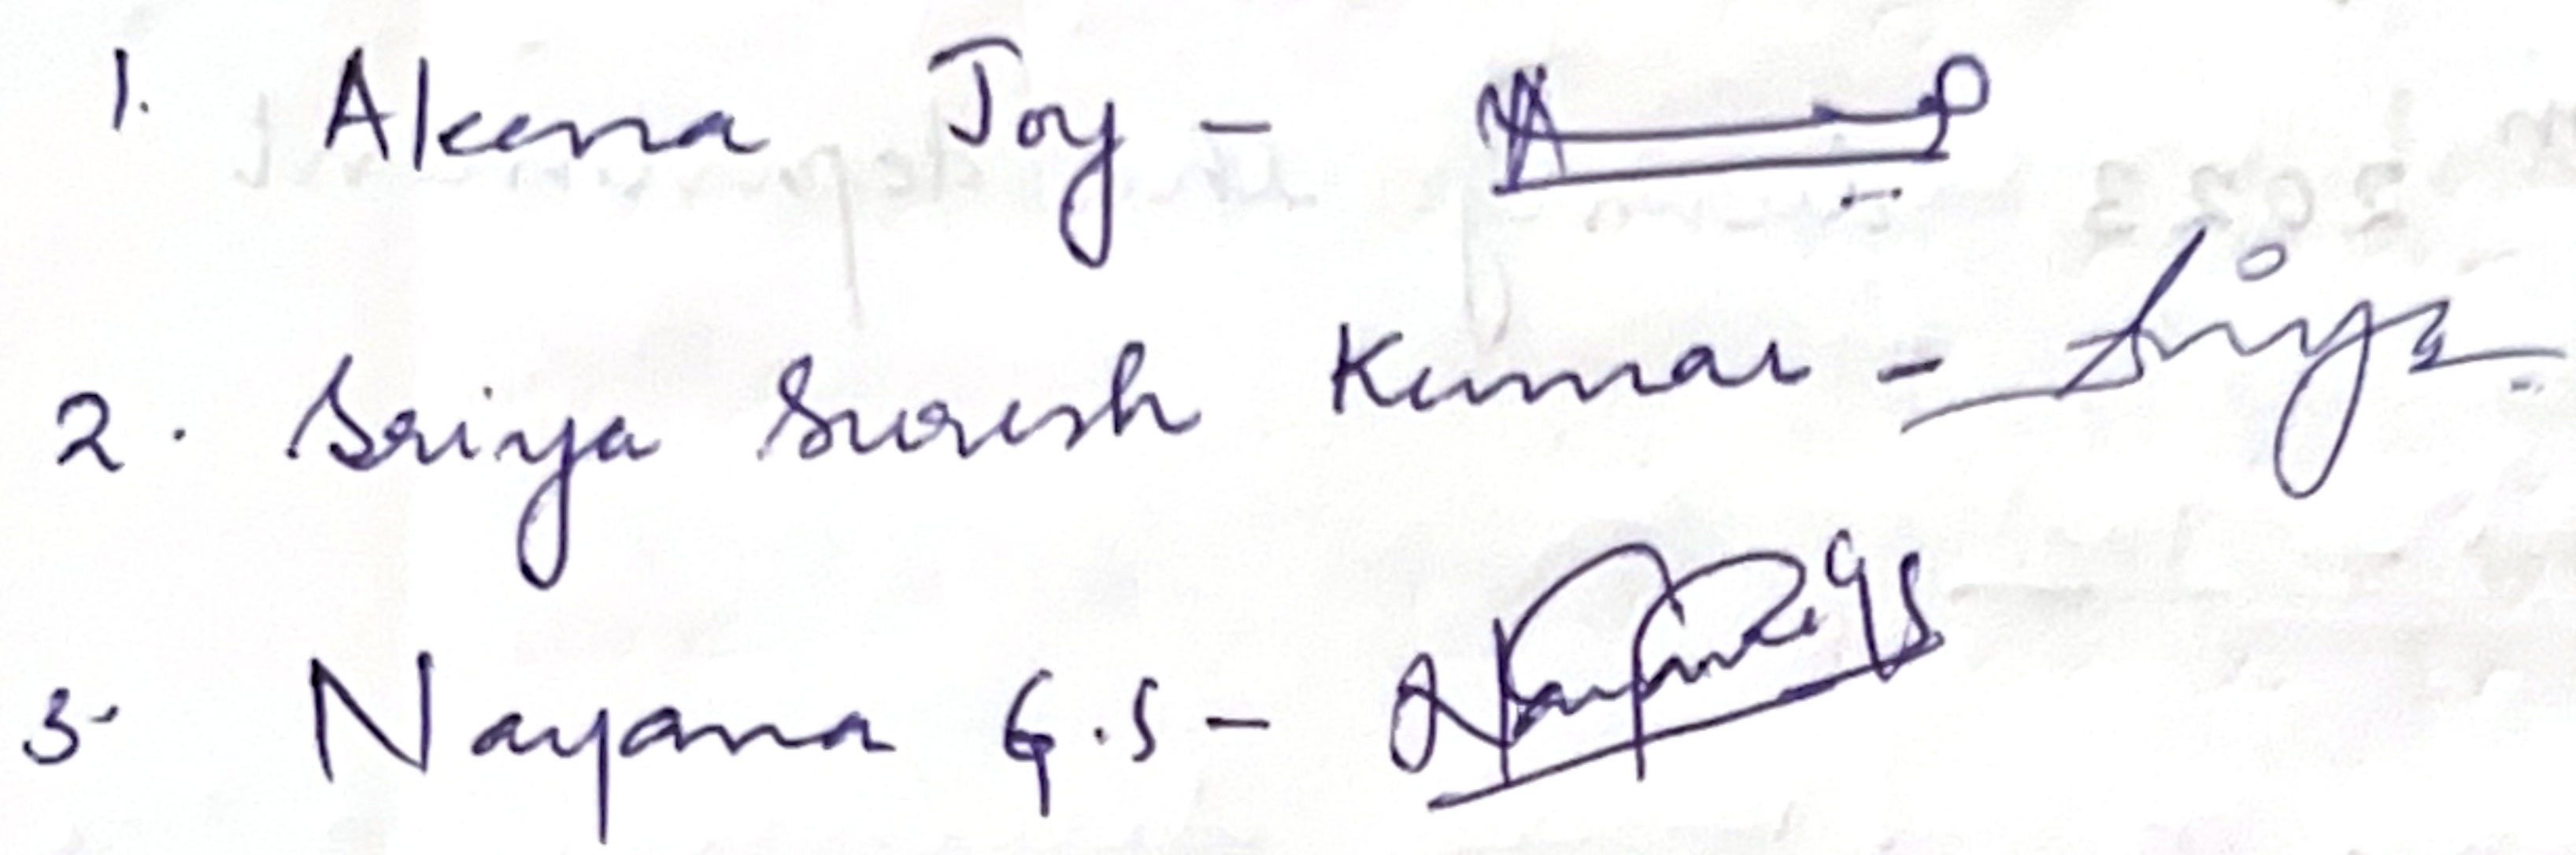 1. Aleena Joy -
2. Sriya Suresh Kumar - Sriya
3. Nayana G.S - Nayana GS